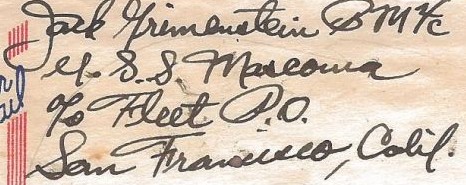 Jack Grimenstein BM 1/c
U.S.S. Mascoma
c/o Fleet P.O.
San Francisco, Calif.